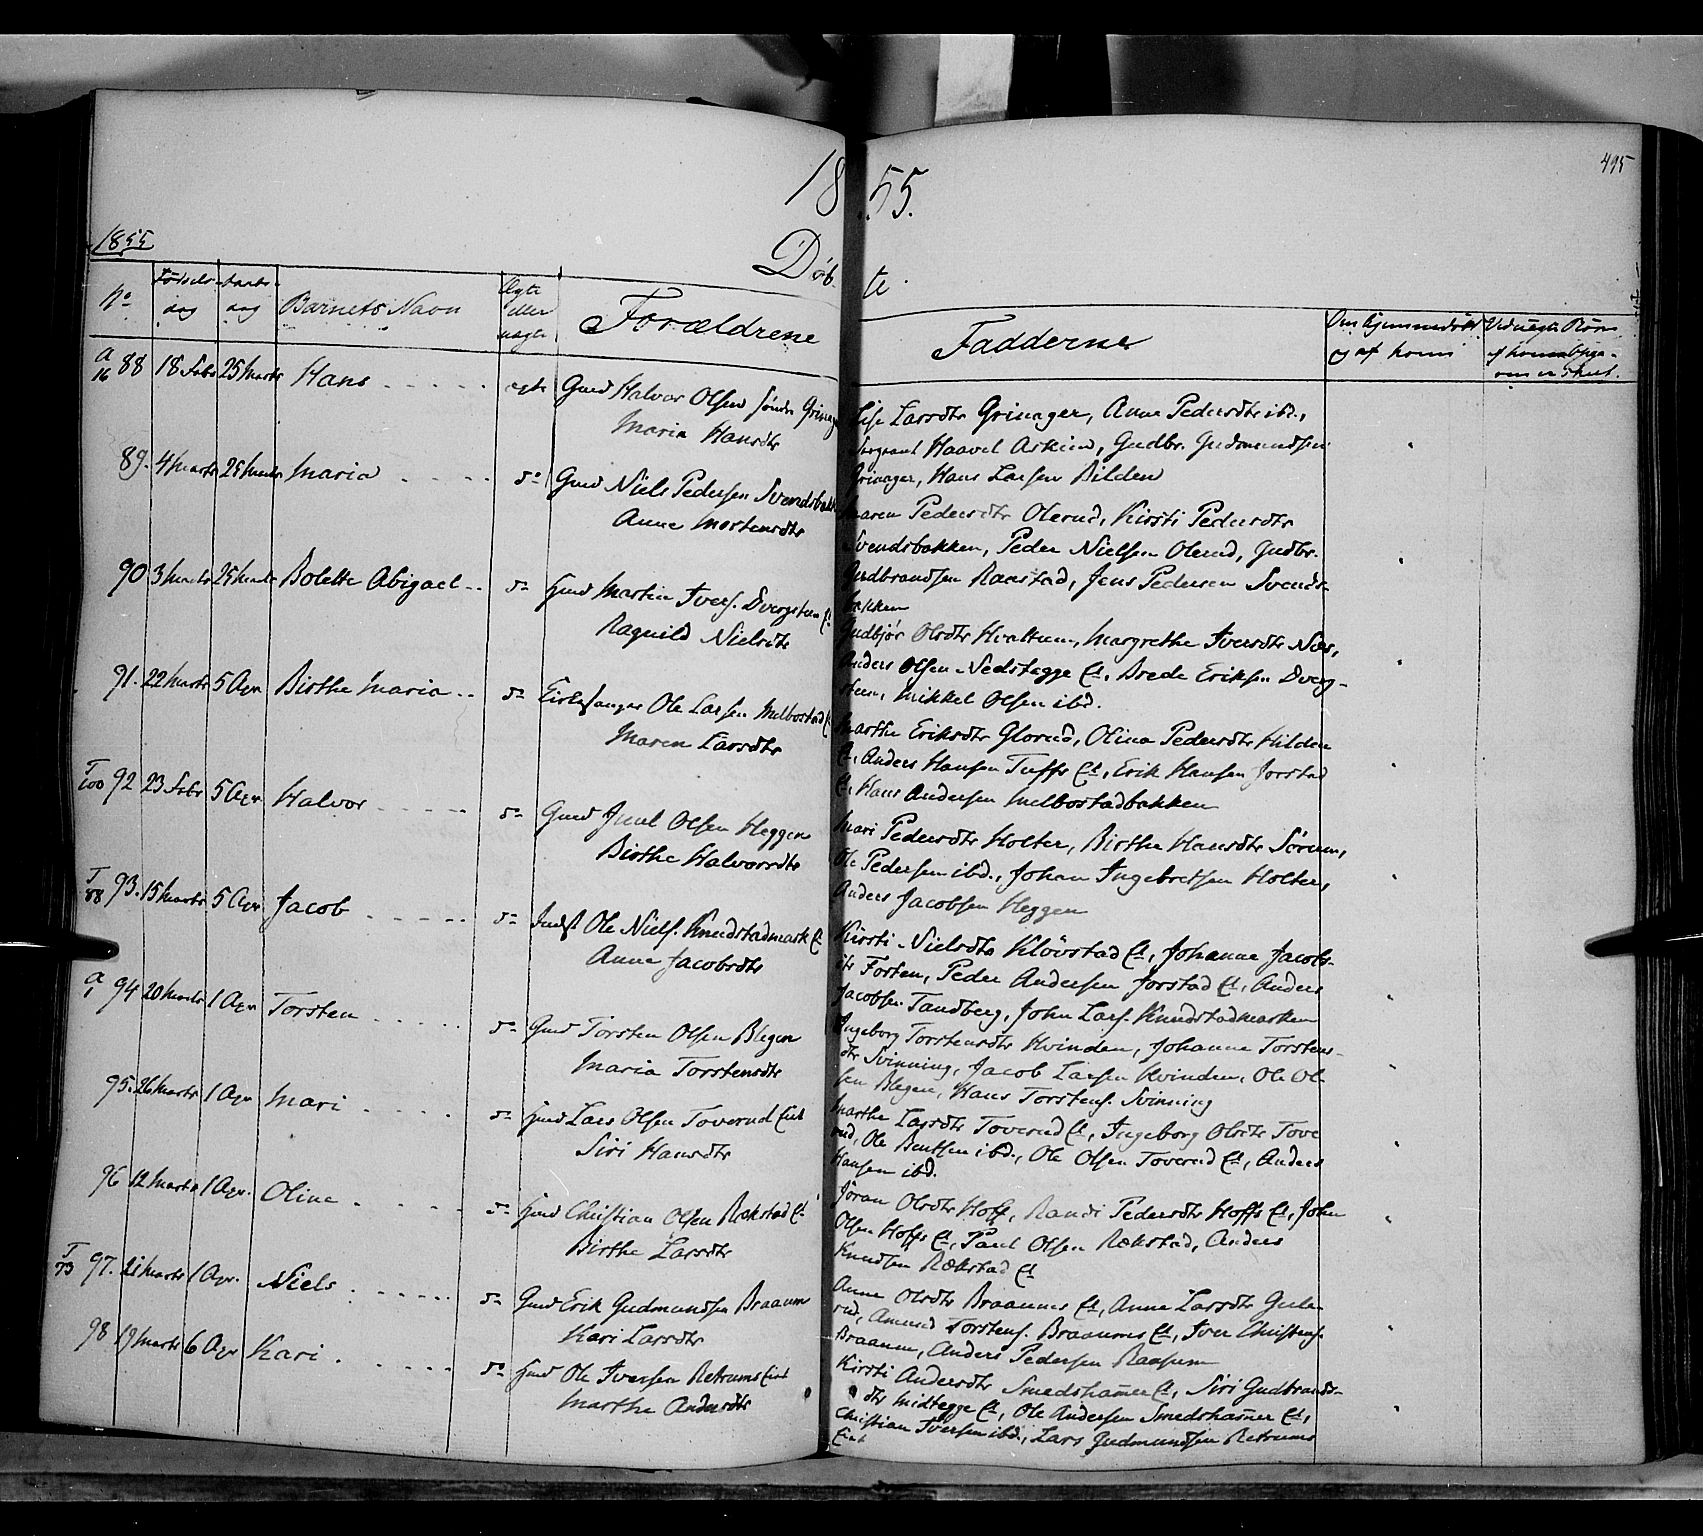 1855.
495
1855
Døbte.
No Fødsels-dag Daabs-dag Barnets Navn Ægte eller uægte Forældrene
Fadderne Om hjemmedøbt og af hvem
A 16 88 18 Febr 25 Marts Hans egte Gmd Halvor Olsen søndre Grinager
Maria Hansdtr
Lise Larsdtr Grinager, Anne Pedersdtr ibd.,
Sergeant Haavel Askim, Gudbr. Gudmundsen
Grinager, Hans Larsen Bilden
89. 4 Marts 25 Marts Maria do Gmd Niels Pedersen Svendsbakken
Anne Mortensdtr
Maren Pedersdtr Olerud, Kirsti Pedersdtr
Svendsbakken, Peder Nielsen Olerud, Gudbr.
Gudbrandsen Raastad, Jens Pedersen Svends-
bakken
90 3 Marts 25 Marts Bolette Abigael do Hmd Martin Ivers. Dvergsten Et
Ragnild Nielsdtr
Gudbjør Olsdtr Hvattum, Margrethe Iversdtr Næs,
Anders Olsen Nedstegge Et, Brede Eriksen Dverg-
sten, Mikkel Olsen ibd.
91. 22 Marts 5 Apr Birthe Maria do Kirkesanger Ole Larsen Melbostad Et
Maren Larsdtr
Marthe Eriksdtr Glorud, Olina Pedersdtr Hilden
Et, Anders Hansen Tuffs Et, Erik Hansen Jorstad
Et, Hans Andersen Melbostadbakken
T 100 92 23 Febr 5 Apr Halvor do Gmd Juul Olsen Heggen
Birthe Halvorsdtr
Mari Pedersdtr Holter, Birthe Hansdtr Sørum,
Ole Pedersen ibd., Johan Ingebretsen Holter,
Anders Jacobsen Heggen
T 88 93. 15 Marts 5 Apr Jacob do Indst Ole Niels. Knudstadmark Et
Anne Jacobsdtr
Kirsti Nielsdtr Kløvstad Et, Johanne Jacobs-
dtr Forten, Peder Andersen Jorstad Et, Anders
Jacobsen Tandberg, John Lars. Knudstadmarken
A 1 94 20 Marts 1 Apr Torsten do Gmd Torsten Olsen Blegen
Maria Torstensdtr
Ingeborg Torstensdtr Hvinden, Johanne Torstens-
dtr Svinning, Jacob Larsen Hvinden, Ole Ol-
sen Blegen, Hans Torstens. Svinning
95. 26 Marts 1 Apr Mari do Hmd Lars Olsen Toverud Eiet
Siri Hansdtr
Marthe Larsdtr Toverud Et, Ingeborg Olsdtr Tove
rud, Ole Bentsen ibd., Ole Olsen Toverud Et, Anders
Hansen ibd.
96 12 Marts 1 Apr. Oline do Hmd Christian Olsen Rækstad Et
Birthe Larsdtr
Jøran Olsdtr Hoff, Randi Pedersdtr Hoffs Et, John
Olsen Hoffs Et, Paul Olsen Rækstad, Anders
Knudsen Rækstad Et
T 73 97. 21 Marts 1 Apr. Niels do Gmd Erik Gudmundsen Braanms
Kari Larsdtr
Anne Olsdtr Braanms Et, Anne Larsdtr Gule-
rud, Amund Torstens. Braanms Et, Iver Christens.
Braanm, Anders Pedersen Raasum
98 19 Marts 6 Apr Kari do Hmd Ole Iversen Retrums Eiet
Marthe Andersdtr
Kirsti Andersdtr Smedshamer Et, Siri Gudbrands-
dtr Midtegge Et, Ole Andersen Smedshamer Et,
Christian Iversen ibd., Lars Gudmundsen Retrums
Eiet